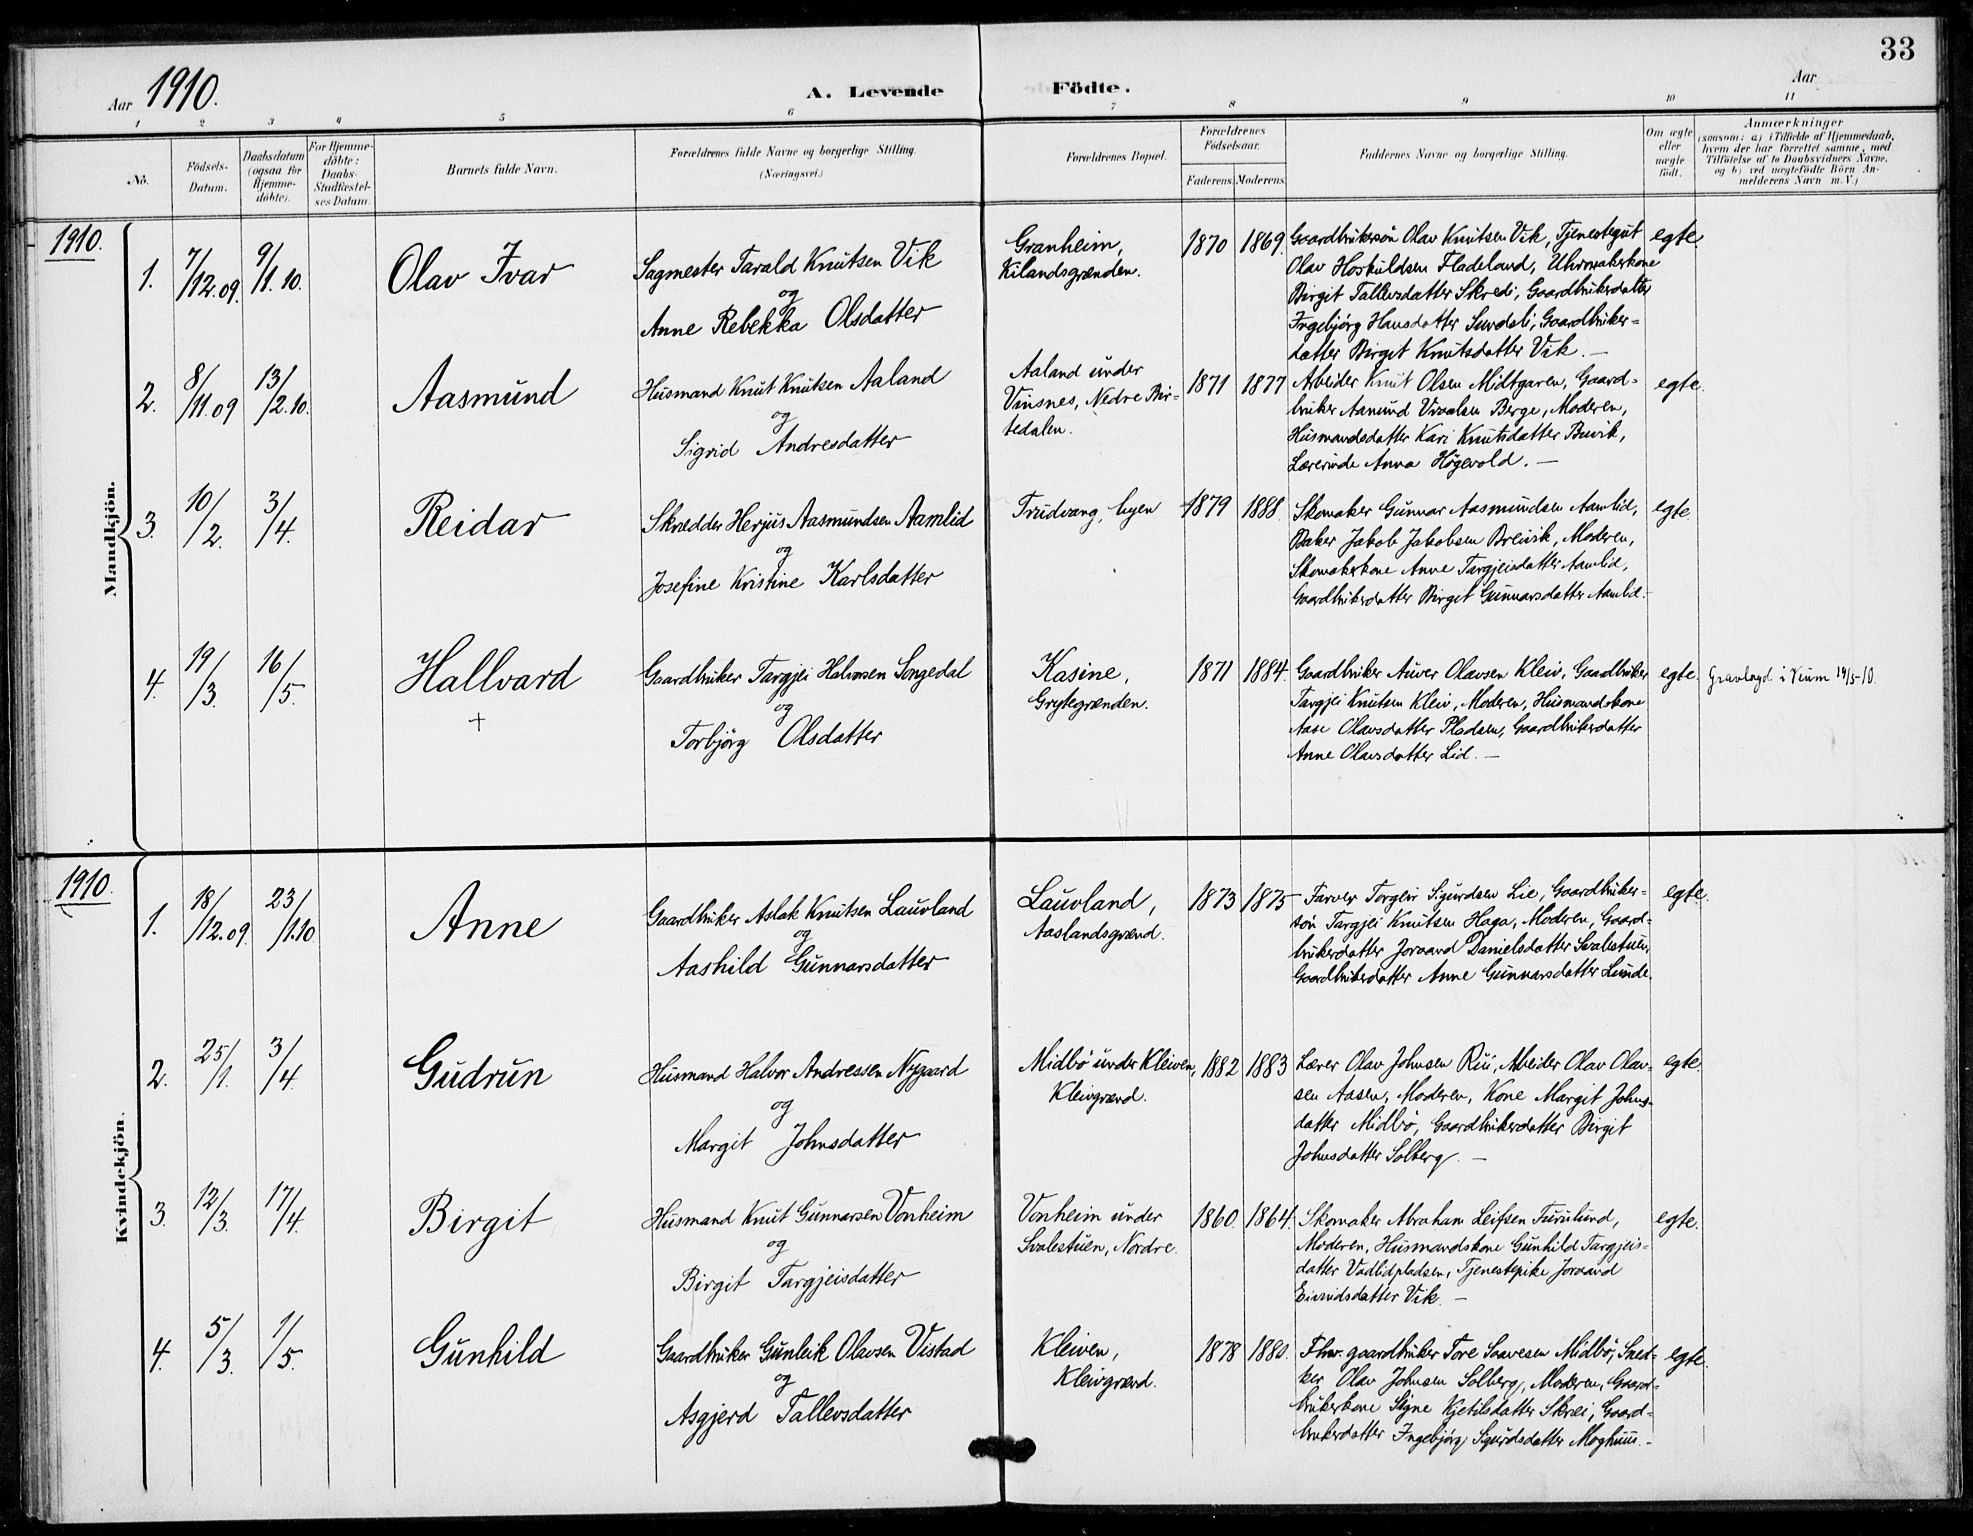 33
Aar 1910.
A. Levende Födte.
Aar
1 2 3 4 5 6 7 8 9 10 11
No.
Födsels-
Datum.
Daabsdatum
(ogsaa for
Hjemme-
döbte).
For Hjemme-
döbte:
Daabs-
Stadfæstel-
ses Datum.
Barnets fulde Navn.
Forældrenes fulde Navne og borgerlige Stilling.
(Næringsvei.)
Forældrenes Bopæl.
Forældrenes
Födselsaar.
Faderens. Moderens.
Faddernes Navne og borgerlige Stilling.
Om ægte
eller
uægte
födt.
Anmærkninger
(saasom: a) i Tilfælde af Hjemmedaab,
hvem der har forrettet samme, med
Tilföielse af to Daabsvidners Navne,
og b) ved uægtefödte Börn An-
melderens Navn m. V.)
1910.
Mandkjön.
1. 7/12.09. 9/1.10. Olav Ivar
Sagmester Tarald Knutsen Vik
og
Anne Rebekka Olsdatter
Granheim,
Kilandsgrænden.
1870 1869.
Gaardbrukersön Olav Knutsen Vik, Tjenestegut
Olav Hoskuldsen Fladeland, Uhrmakerkone
Birgit Tallevsdatter Skredi, Gaardbrukerdatter
Ingebjörg Hansdatter Suvdöli, Gaardbruker-
datter Birgit Knutsdatter Vik. —
egte.
2. 8/11.09 13/2.10. Aasmund
Husmand Knut Knutsen Aaland
og
Sigrid Andresdatter
Aaland under
Vinsnes, Nedre Bir-
tedalen.
1871 1877
Arbeider Knut Olsen Midtgaren, Gaard-
bruker Aanund Berge, Moderen,
Husmandsdatter Kari Knutsdatter Buvik,
Lærerinde Anna Högevold. —
egte.
3. 10/2. 3/4. Reidar
Skrædder Herjus Aasmundsen Aamlid
og
Josefine Kristine Karlsdatter
Trudvang, byen
1879 1888.
Skomaker Gunnar Aasmundsen Aamlid,
Baker Jakob Jakobsen Breivik, Moderen,
Skomakerkone Anne Targjeisdatter Aamlid,
Gaardbrukerdatter Birgit Gunnarsdatter Aamlid.
egte.
4. 19/3. 16/5. Hallvard
+
Gaardbruker Targjei Halvorsen Songedal
og
Torbjörg Olsdatter
Kasine,
Grytegrænden.
1871 1884.
Gaardbruker Auver Olavsen Kleiv, Gaardbruker
Targjei Knutsen Kleiv, Moderen, Husmandskone
Aase Olavsdatter Pladsen, Gaardbrukerdatter
Anne Olavsdatter Lid. —
egte.
Gravlagd i 14/5-10.
1910.
Kvindekjön.
1. 18/12.09. 23/1.10 Anne
Gaardbruker Aslak Knutsen Lauvland
og
Aashild Gunnarsdatter
Lauvland,
Aaslandsgrænd.
1873 1875
Farver Torgeir Sigurdsen Lie, Gaardbruker-
sön Targjei Knutsen Haga, Moderen, Gaard-
brukerdatter Joraand Danielsdatter Svalestuen,
Gaardbrukerdatter Anne Gunnarsdatter Lunde.
egte.
2. 25/1. 3/4. Gudrun
Husmand Halvor Andressen Nygaard
og
Margit Johnsdatter
Midbö under Kleiven,
Kleivgrænd.
1882 1883
Lærer Olav Johnsen Rui, Arbeider Olav Olav-
sen Aasen, Moderen, Kone Margit Johns-
datter Midbö, Gaardbrukerdatter Birgit
Johnsdatter Solberg. —
egte.
3. 12/3. 17/4. Birgit
Husmand Knut Gunnarsen Vonheim
og
Birgit Targjeisdatter
Vonheim under
Svalestuen, Nordre.
1860 1864.
Skomaker Abraham Leifsen Furulund,
Moderen, Husmandskone Gunhild Targjeis-
datter Vadlidpladsen, Tjenestepike Joraand
Eivindsdatter Vik. —
egte.
4. 5/3. 1/5. Gunhild
Gaardbruker Gunleik Olavsen Vistad
og
Asgjerd Tallevsdatter
Kleiven,
Kleivgrænd.
1878 1880.
Fhv. gaardbruker Tore Saavesen Midbö, Sned-
ker Olav Johnsen Solberg, Moderen, Gaard-
brukerkone Signe Kjetilsdatter Skrei, Gaard-
brukerdatter Ingebjörg Sigurdsdatter Moghus. -
egte.